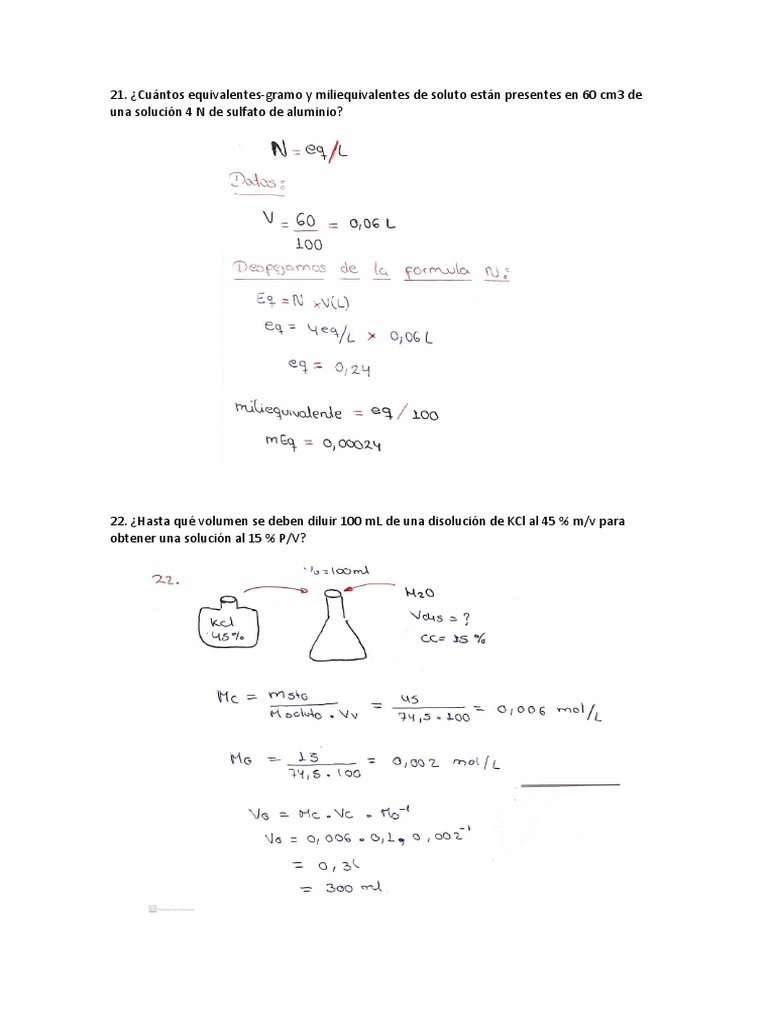 21. ¿Cuántos equivalentes-gramo y miliequivalentes de soluto están presentes en 60 cm3 de
una solución 4 N de sulfato de aluminio?
N = eq/L
Datos:
V = 60/100 = 0,06 L
Despejamos de la formula N:
Eq = N x V(L)
eq = 4eq/L x 0,06 L
eq = 0,24
miliequivalente = eq / 100
mEq = 0,00024
22. ¿Hasta qué volumen se deben diluir 100 mL de una disolución de KCl al 45 % m/v para
obtener una solución al 15 % P/V?
22.
V₀=100ml
KCl
45%
H2O
Vdis = ?
CC= 15 %
Mc = msto / Msoluto . Vv = 45 / 74,5 . 100 = 0,006 mol/L
MG = 15 / 74,5 . 100 = 0,002 mol/L
VG = Mc . Vc . MG⁻¹
VG = 0,006 . 0,1 . 0,002⁻¹
= 0,3L
= 300 ml